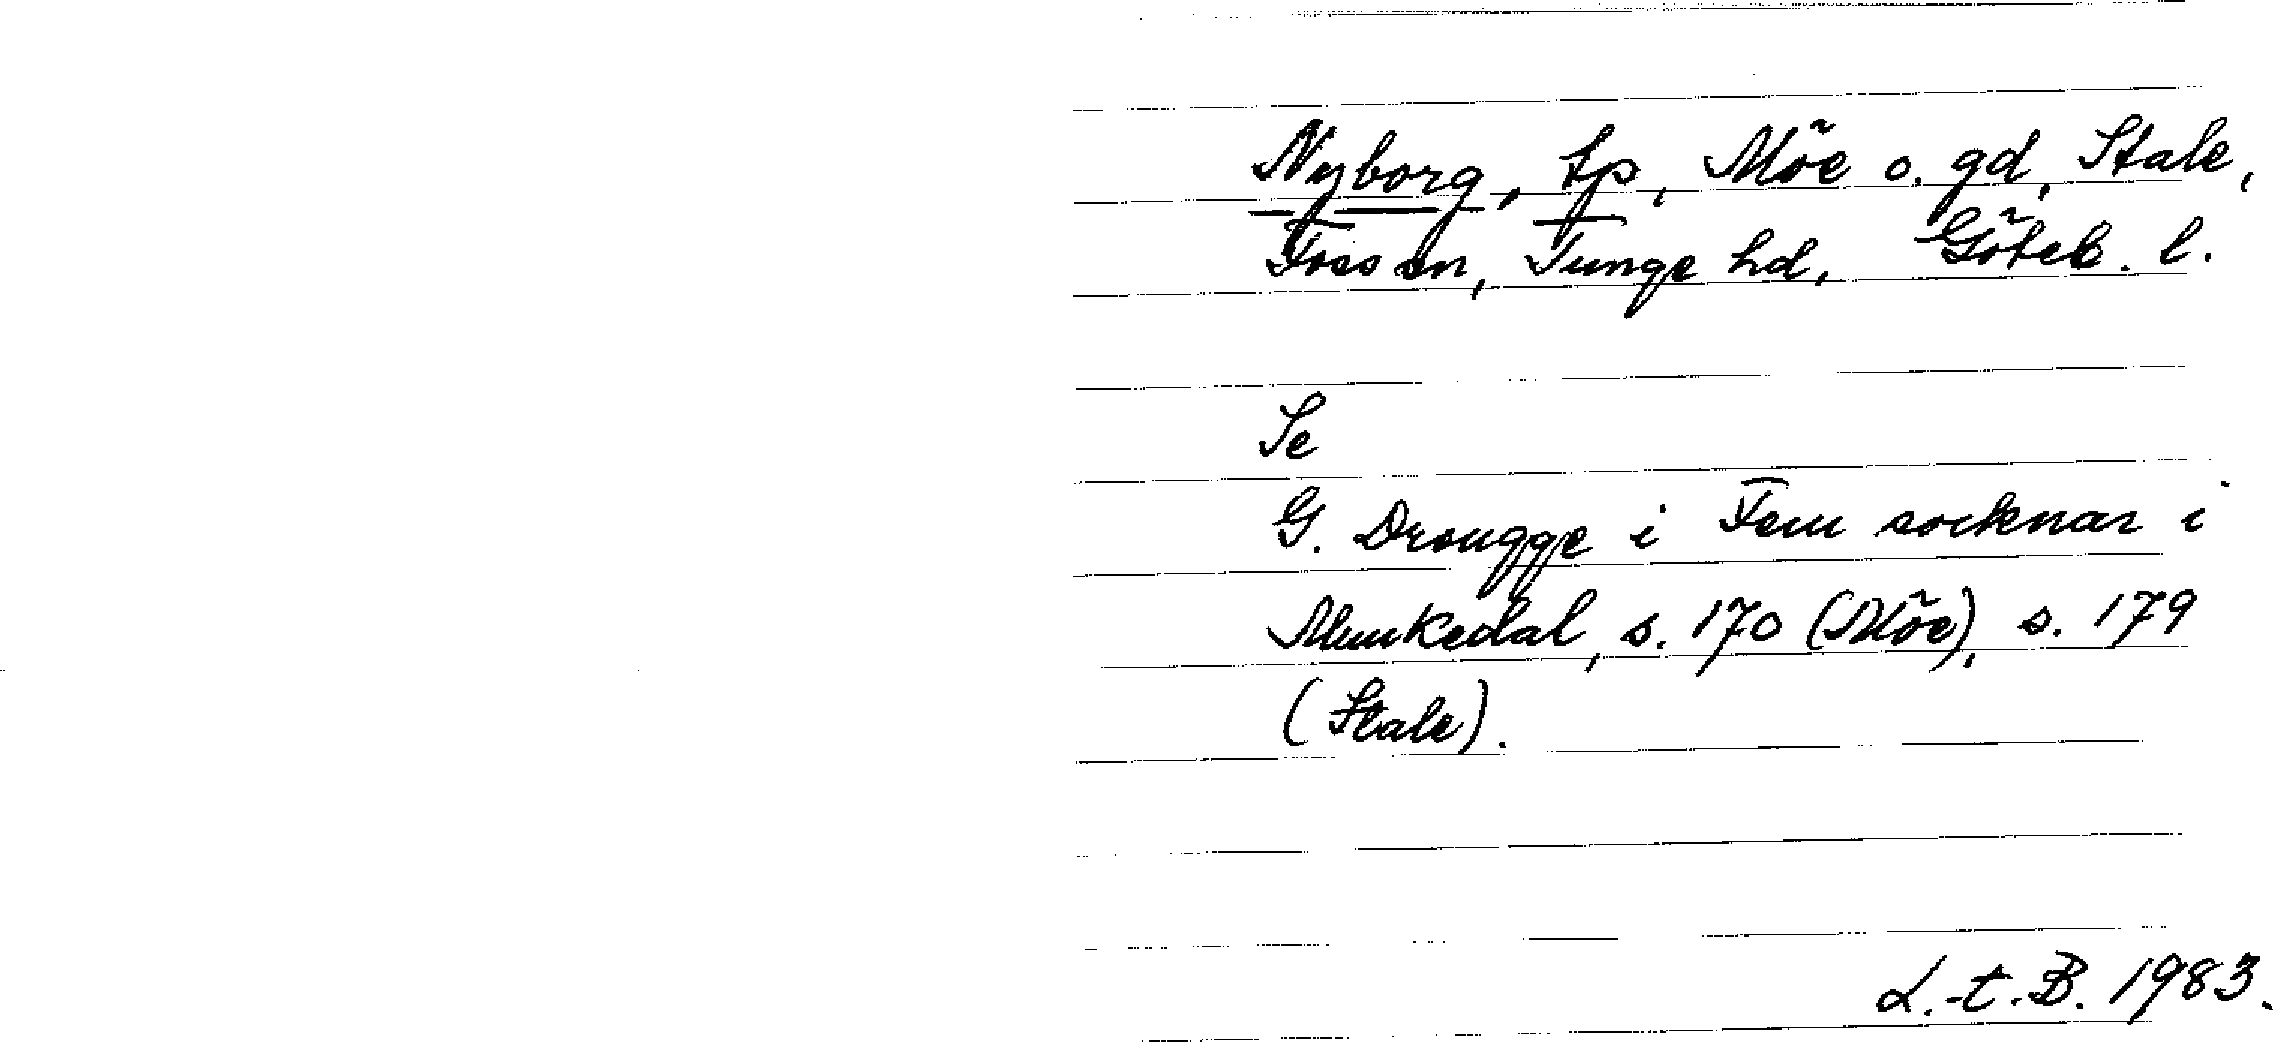 Nyborg, tp, Möe o. gd, Stale,
Foss sn, Tunge hd, Göteb. l.
Se
G. Drougge i Fem socknar i
Munkedal, s. 170 (Möe), s. 179
(Stale).
L.-t.B. 1983.